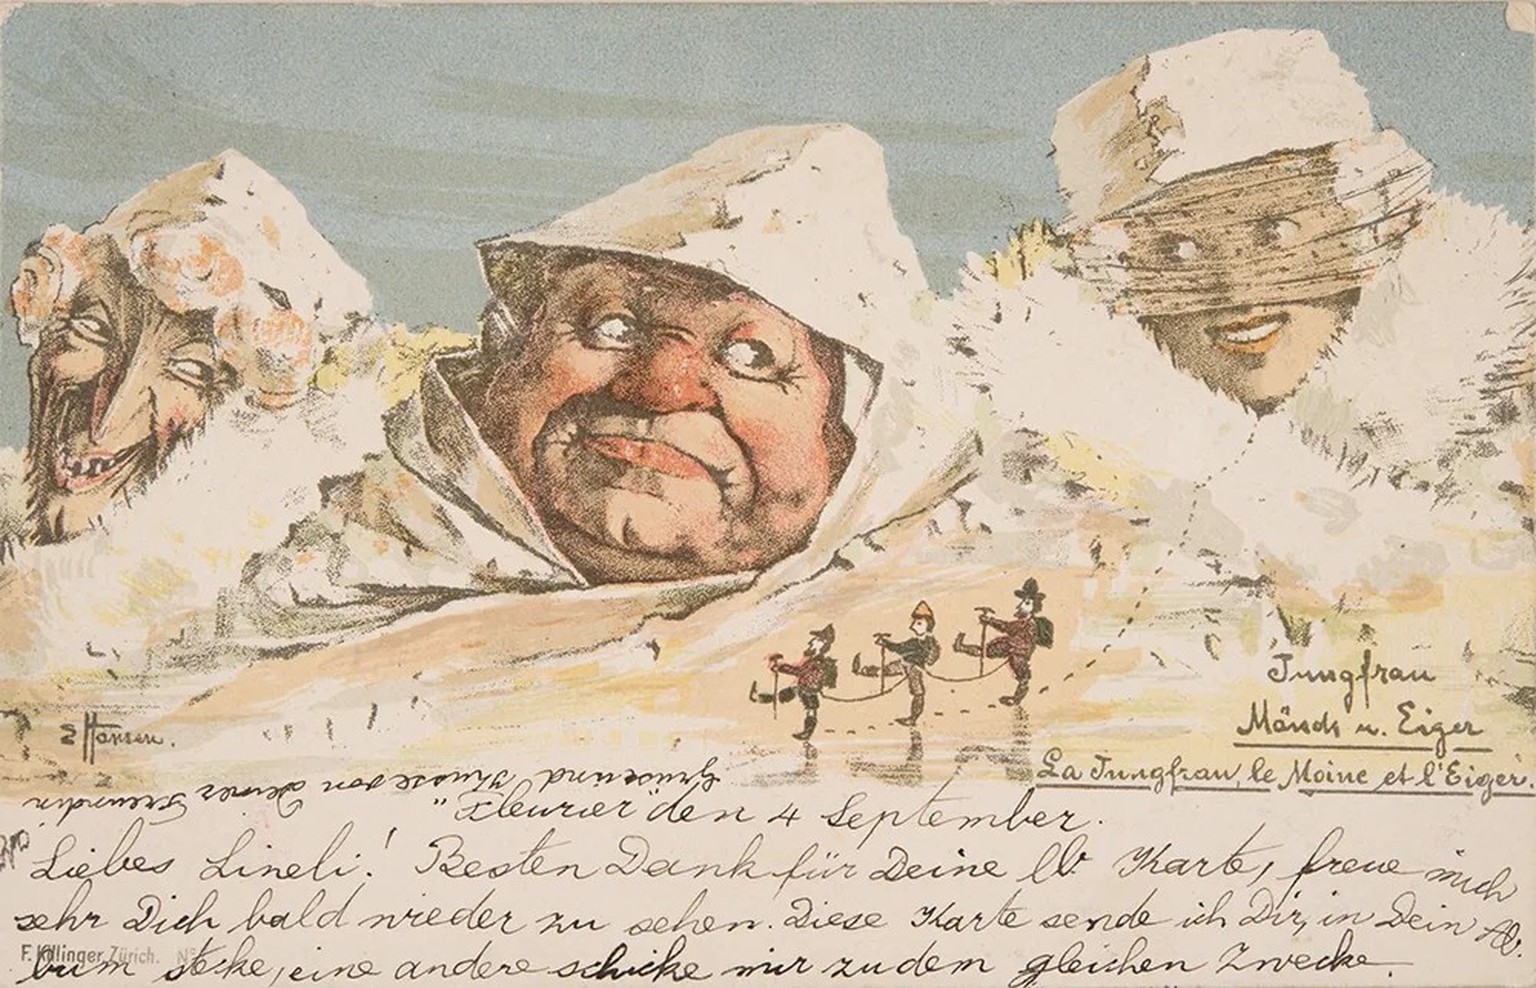 Jungfrau
Mönch u. Eiger
La Jungfrau, le Moine et l'Eiger.
E Hansen.
Grüsse und Küsse von deiner Freundin
"Fleurier" den 4 September.
Liebes Lineli! Besten Dank für Deine lb. Karte, freue mich
sehr Dich bald wieder zu sehen. Diese Karte sende ich Dir, in Dein Al-
bum stecke, eine andere schicke mir zu dem gleichen Zwecke.
F. Killinger, Zürich. No